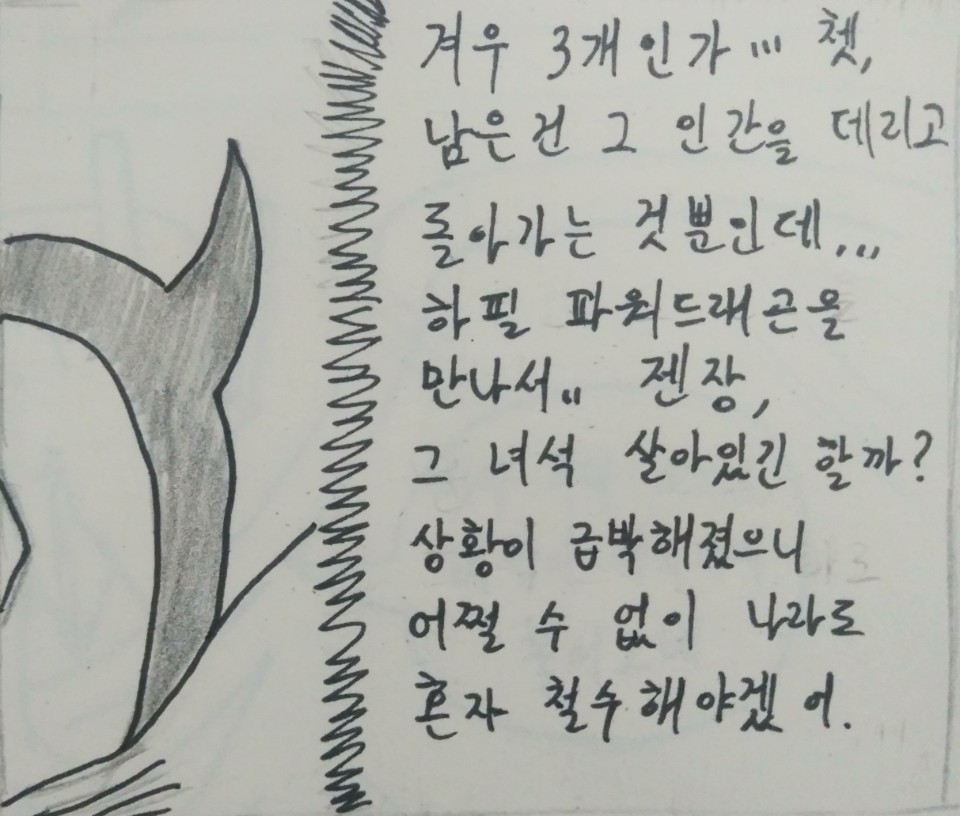 겨우 3개인가... 쳇,
남은건 그 인간을 데리고
돌아가는 것뿐인데...
하필 파워드래곤을
만나서.. 젠장,
그 녀석 살아있긴 할까?
상황이 급박해졌으니
어쩔 수 없이 나라도
혼자 철수해야겠어.